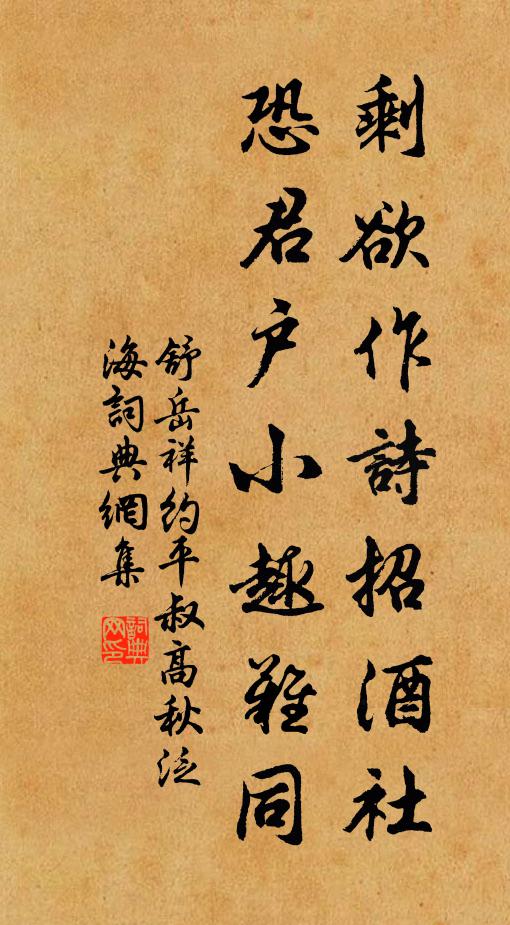 剩欲作詩招酒社
恐君户小趣難同
舒岳祥約平叔高秋泛
海詞典網集
詞典
网印